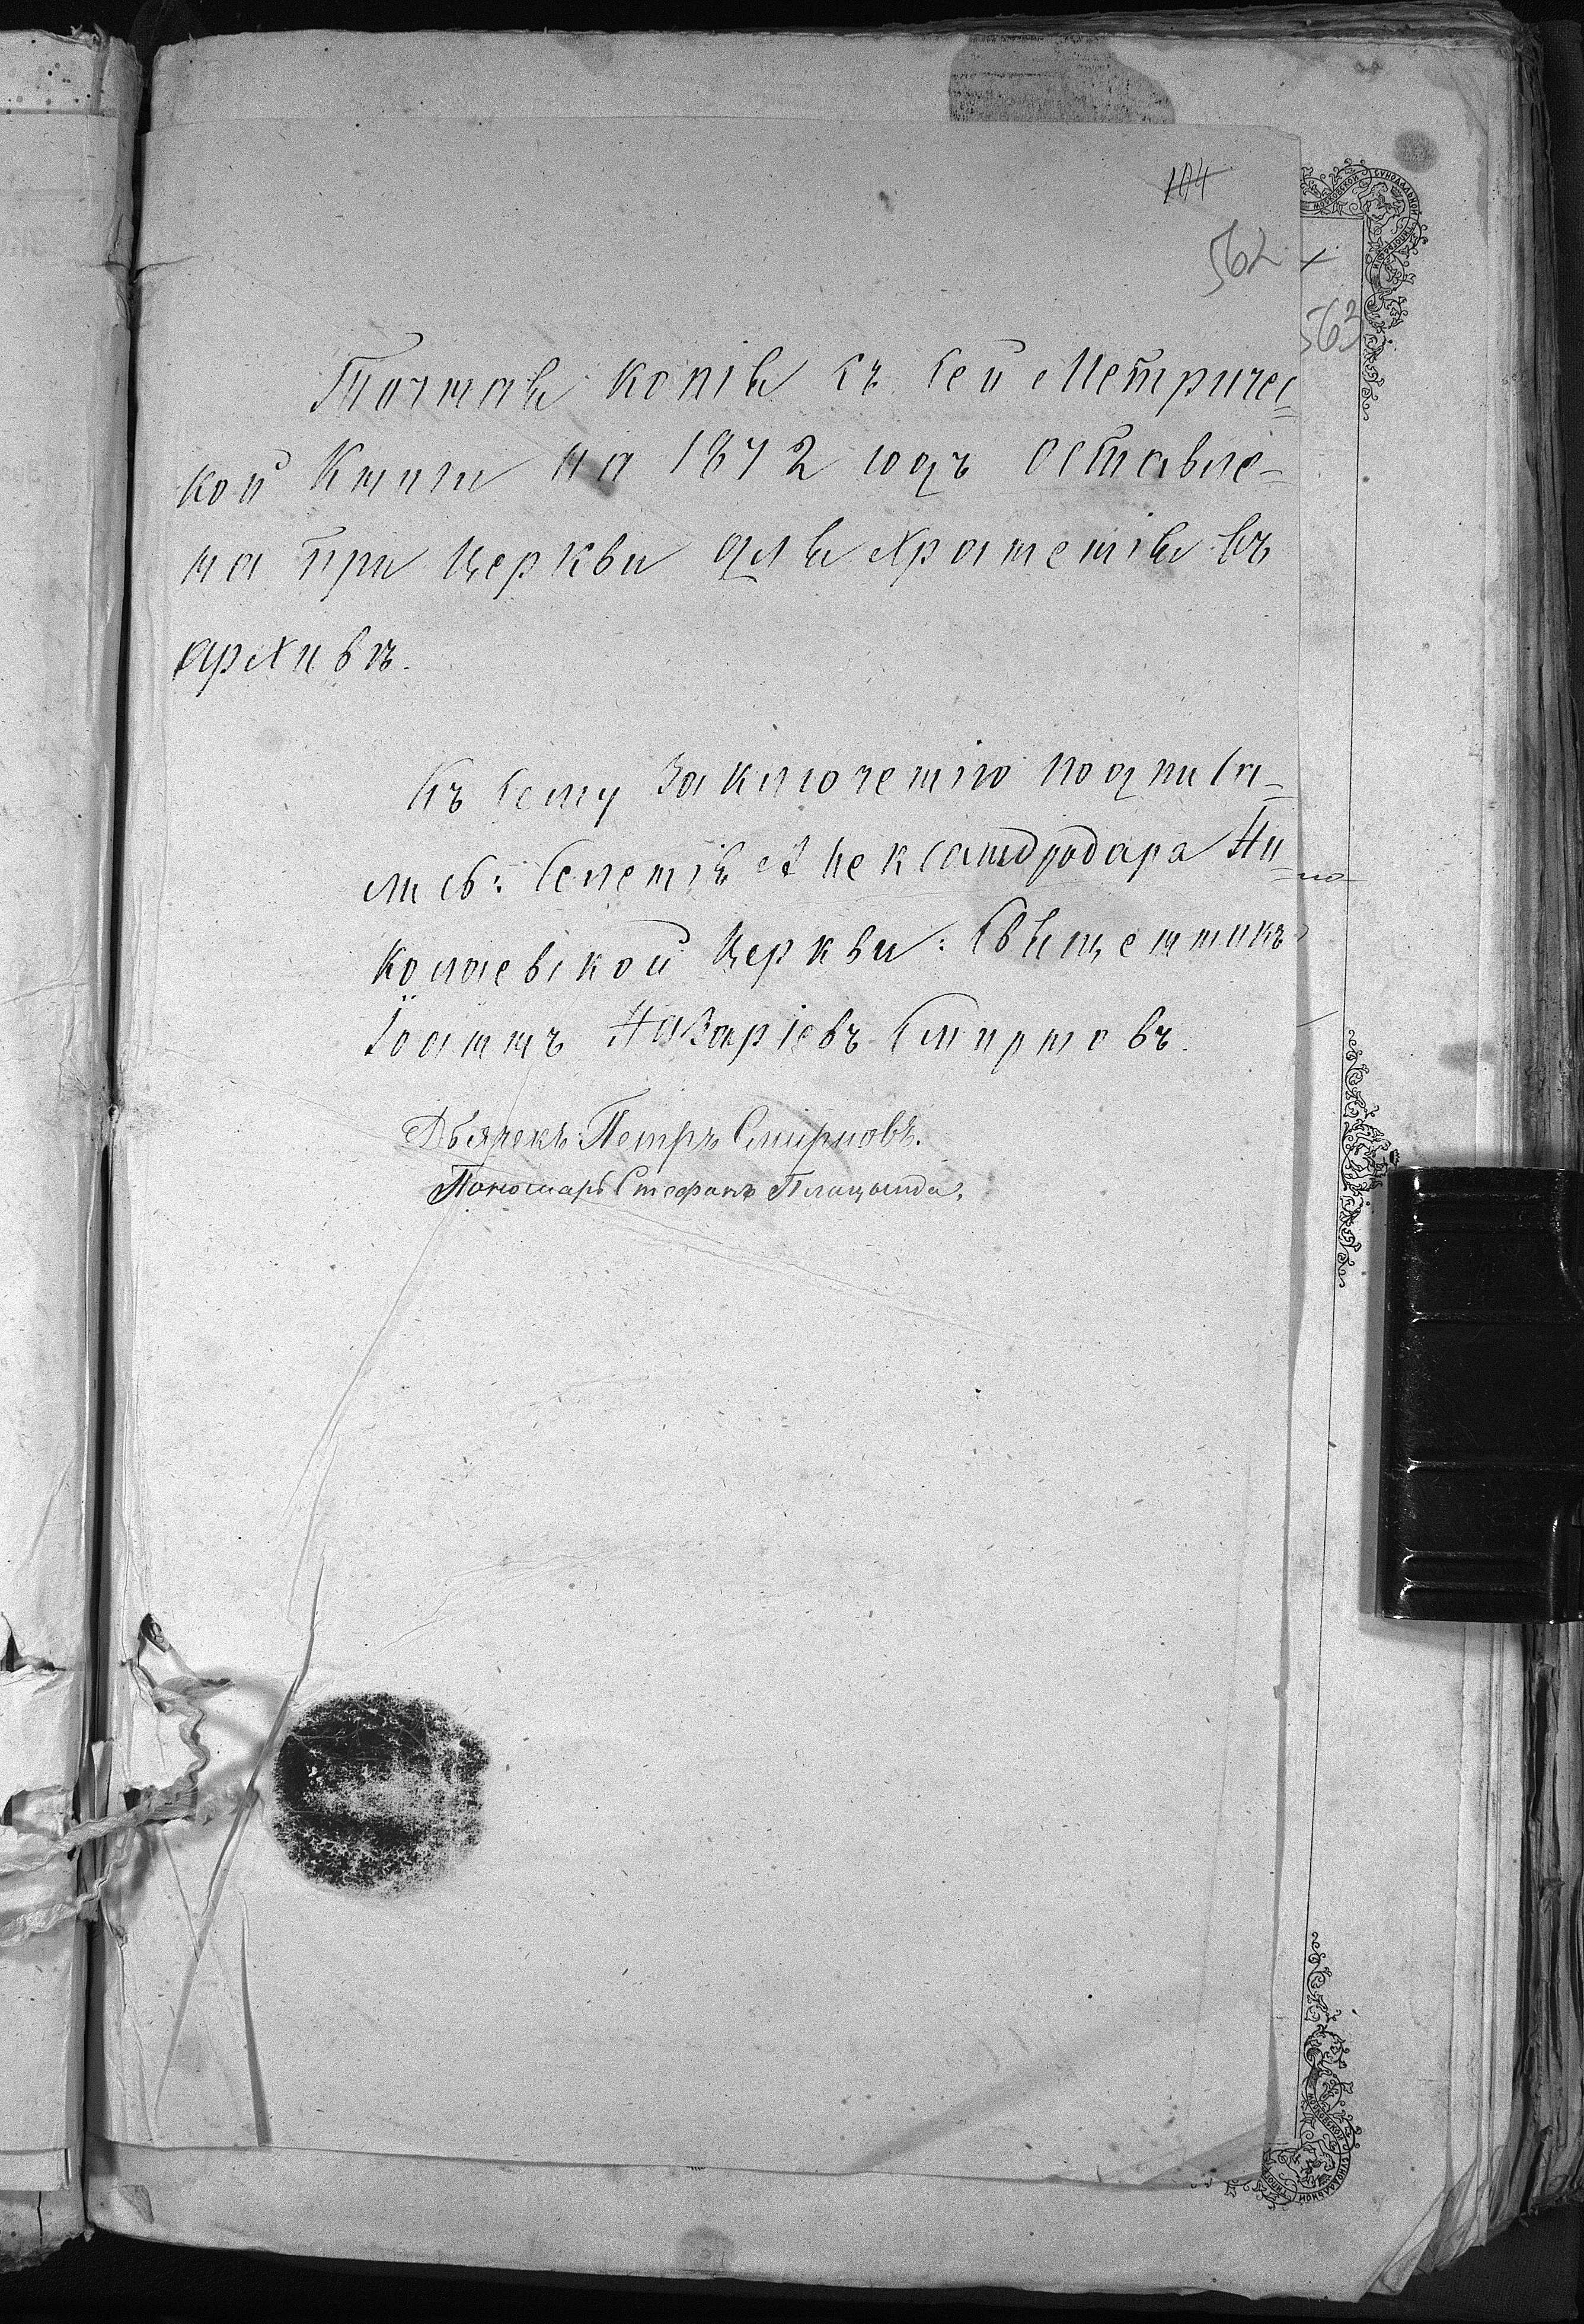 104
562
563
Точная копія съ сей Метричес-
кой Книги на 1872 годъ оставле-
на при Церкви для Храненія въ
архивѣ.
Къ сему Заключенію подписа-
лись: Селенія Александродара Ни-
колаевской Церкви: Священникъ
Іоаннъ Назаріевъ Смирновъ.
Дьячекъ Петръ Смирновъ.
Пономарь Стефанъ Плацында.
МОСКОВСКОЙ СѴНОДАЛЬНОЙ ТИПОГРАФІИ
МОСКОВСКОЙ СѴНОДАЛЬНОЙ